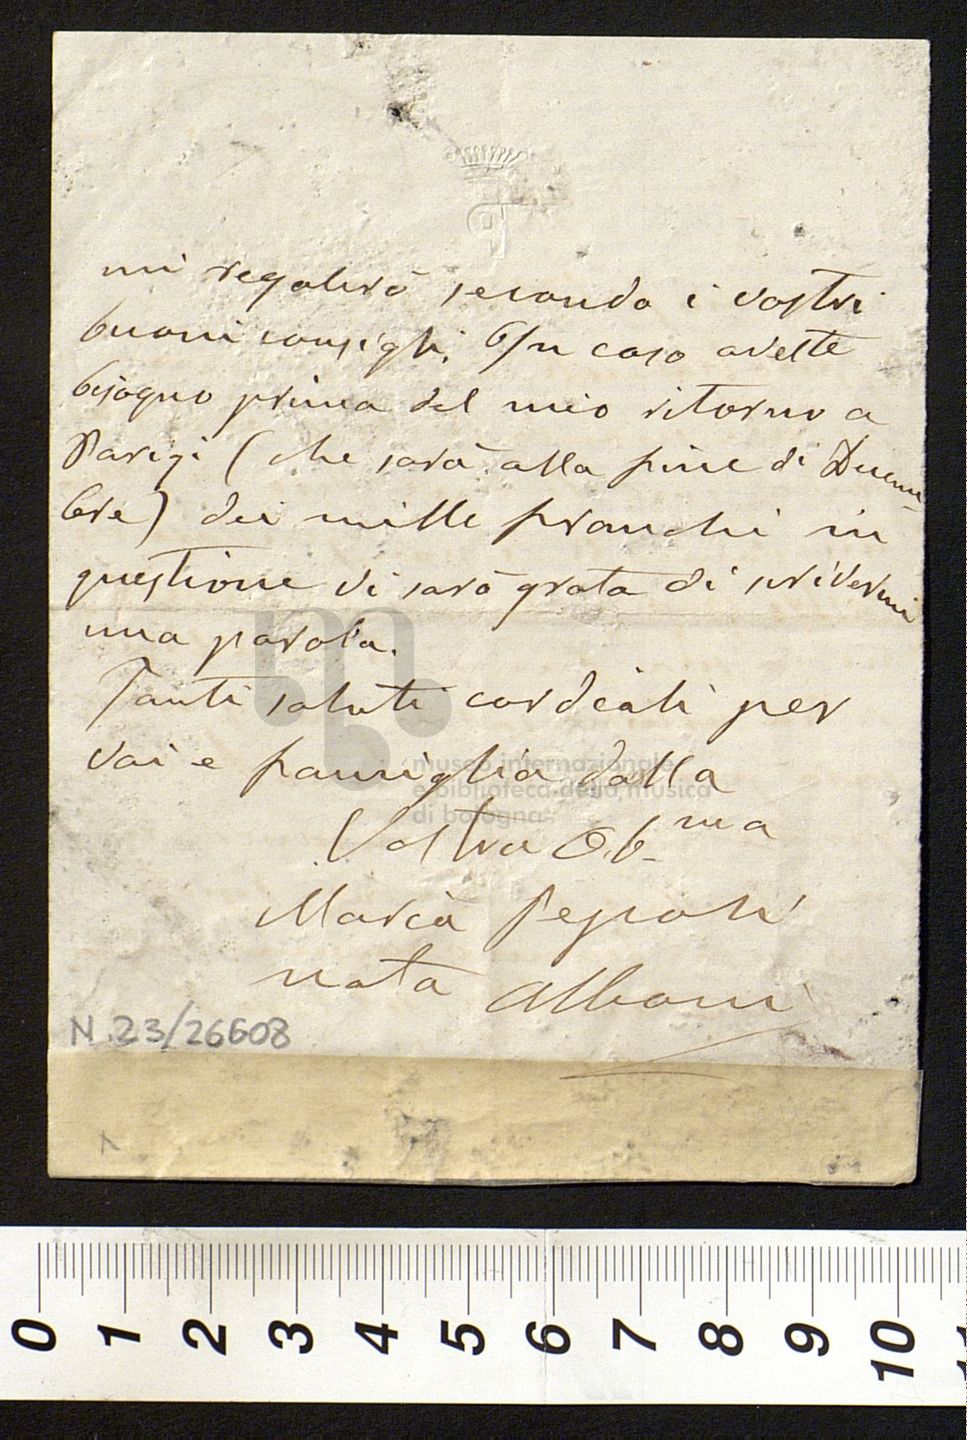 mi regolerò secondo i vostri
buoni consigli. In caso aveste
bisogno prima del mio ritorno a
Parigi (che sarà alla fine di Decem
bre) dei mille franchi in
questione vi sarò grata di scrivermi
una parola.
Tanti saluti cordiali per
voi e famiglia dalla
Vostra Ob.ma
Maria Pepoli
nata Alboni
N. 23/26608
museo internazionale
e biblioteca della musica
di bologna
0 1 2 3 4 5 6 7 8 9 10 11